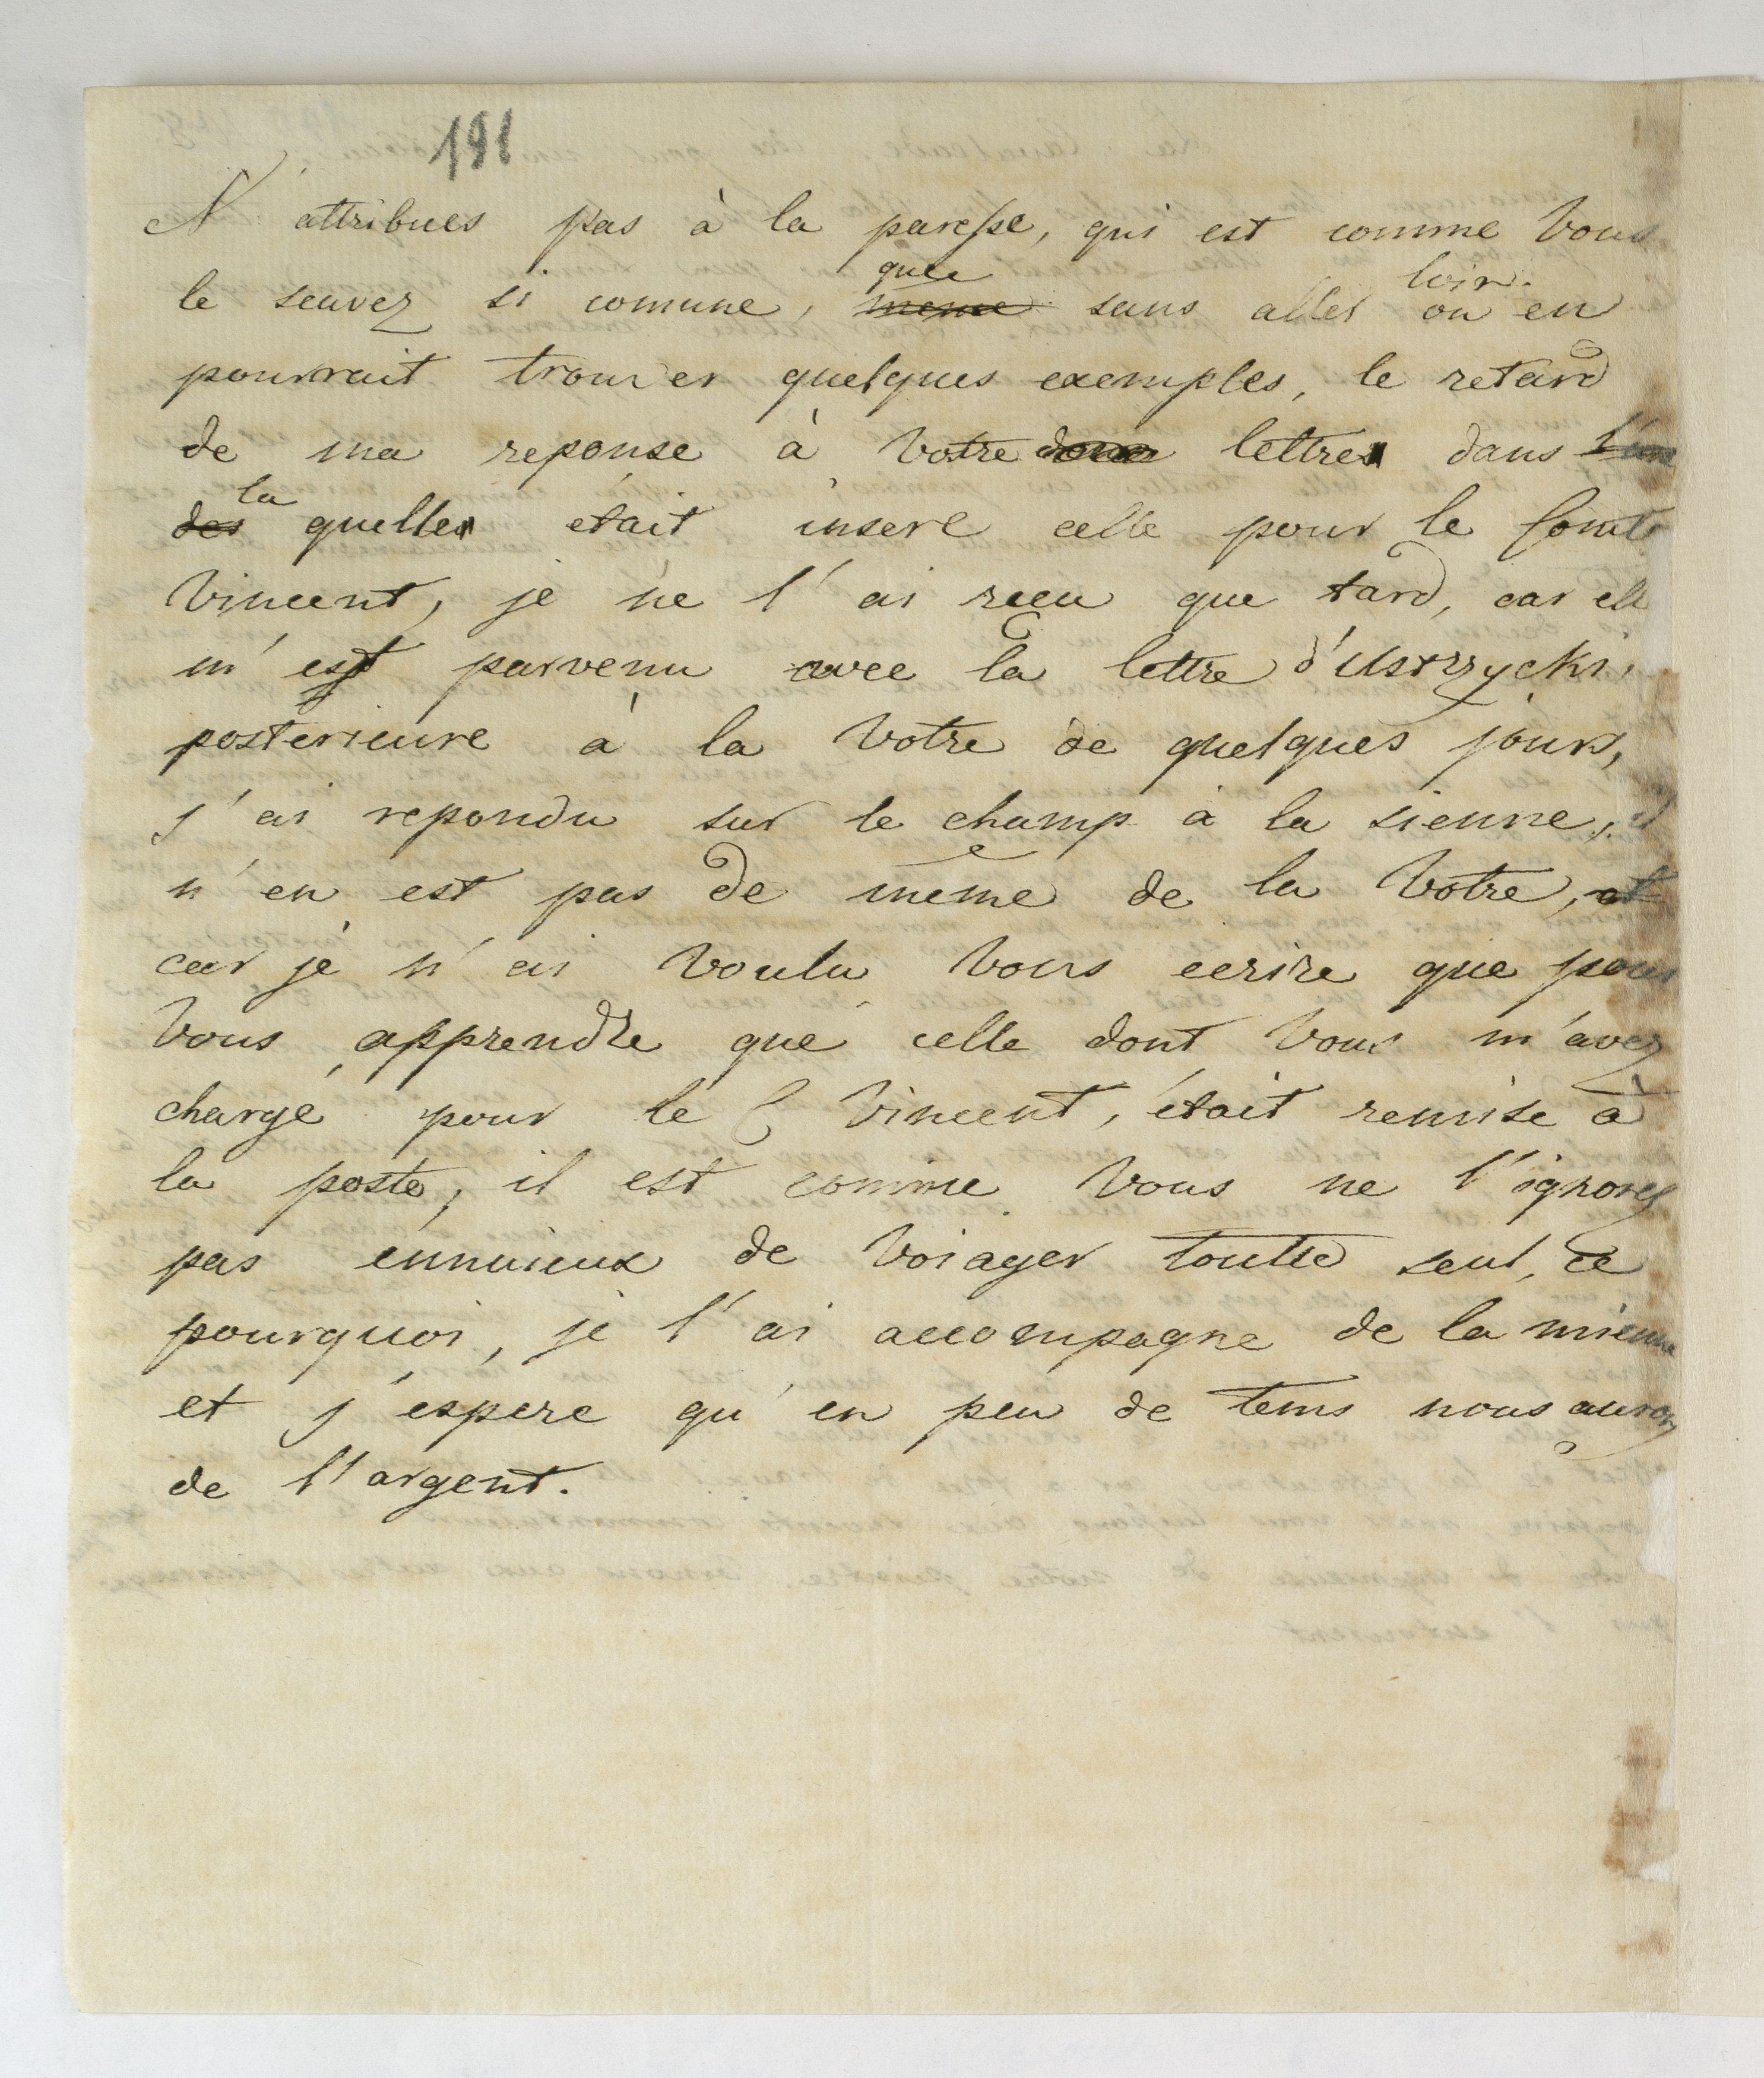 191
N attribues pas à la paresse, qui est comme Vous
le scavez si comune, que sans aller loin. on en
pourrait trouver quelques exemples, le retard
de ma reponse à Votre lettre dans
la quelle etait inseré celle pour le Comte
Vincent, je ne l'ai recu que tard, car elle
m'est parvenu avec la lettre d'Ustrzycki,
posterieure à la Votre de quelques jours,
j'ai repondu sur le champ à la sienne, il
n'en est pas de même de la Votre,
car je n'ai Voulu Vous ecrire que pour
Vous apprendre que celle dont Vous m'avez
chargé pour le C Vincent, était remise à
la poste, il est comme Vous ne l'ignorez
pas ennuieux de Voiager toutte seul, ce
pourquoi, je l'ai accompagne de la mienne
et j'espere qu'en peu de tems nous aurons
de l'argent.